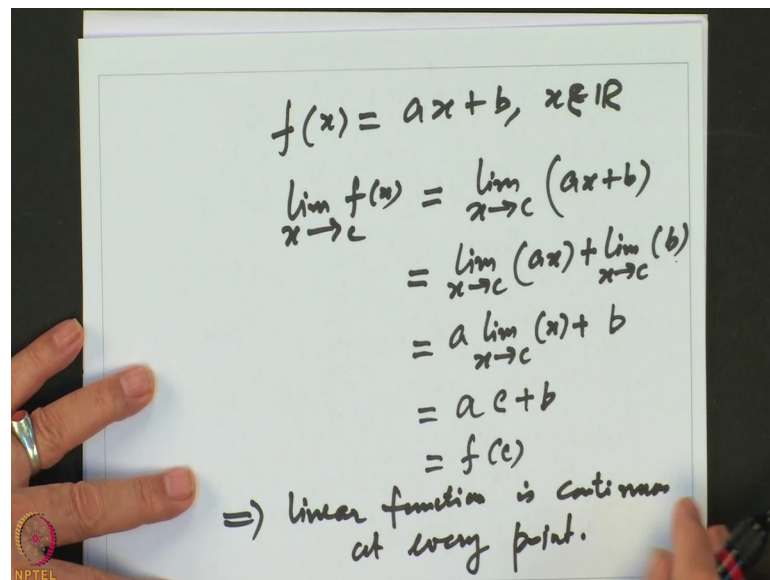 f(x) = ax + b, x ∈ ℝ
lim x→c f(x) = lim x→c (ax+b)
= lim x→c (ax) + lim x→c (b)
= a lim x→c (x) + b
= ac + b
= f(c)
⇒ linear function is continuous
at every point.
NPTEL